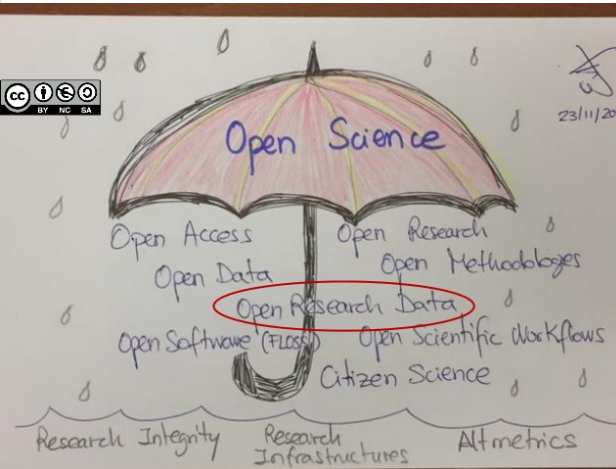 cc
BY NC SA
23/11/20
Open Science
Open Access
Open Research
Open Data
Open Methodologies
Open Research Data
Open Software (FLOSS)
Open Scientific Workflows
Citizen Science
Research Integrity
Research Infrastructures
Altmetrics